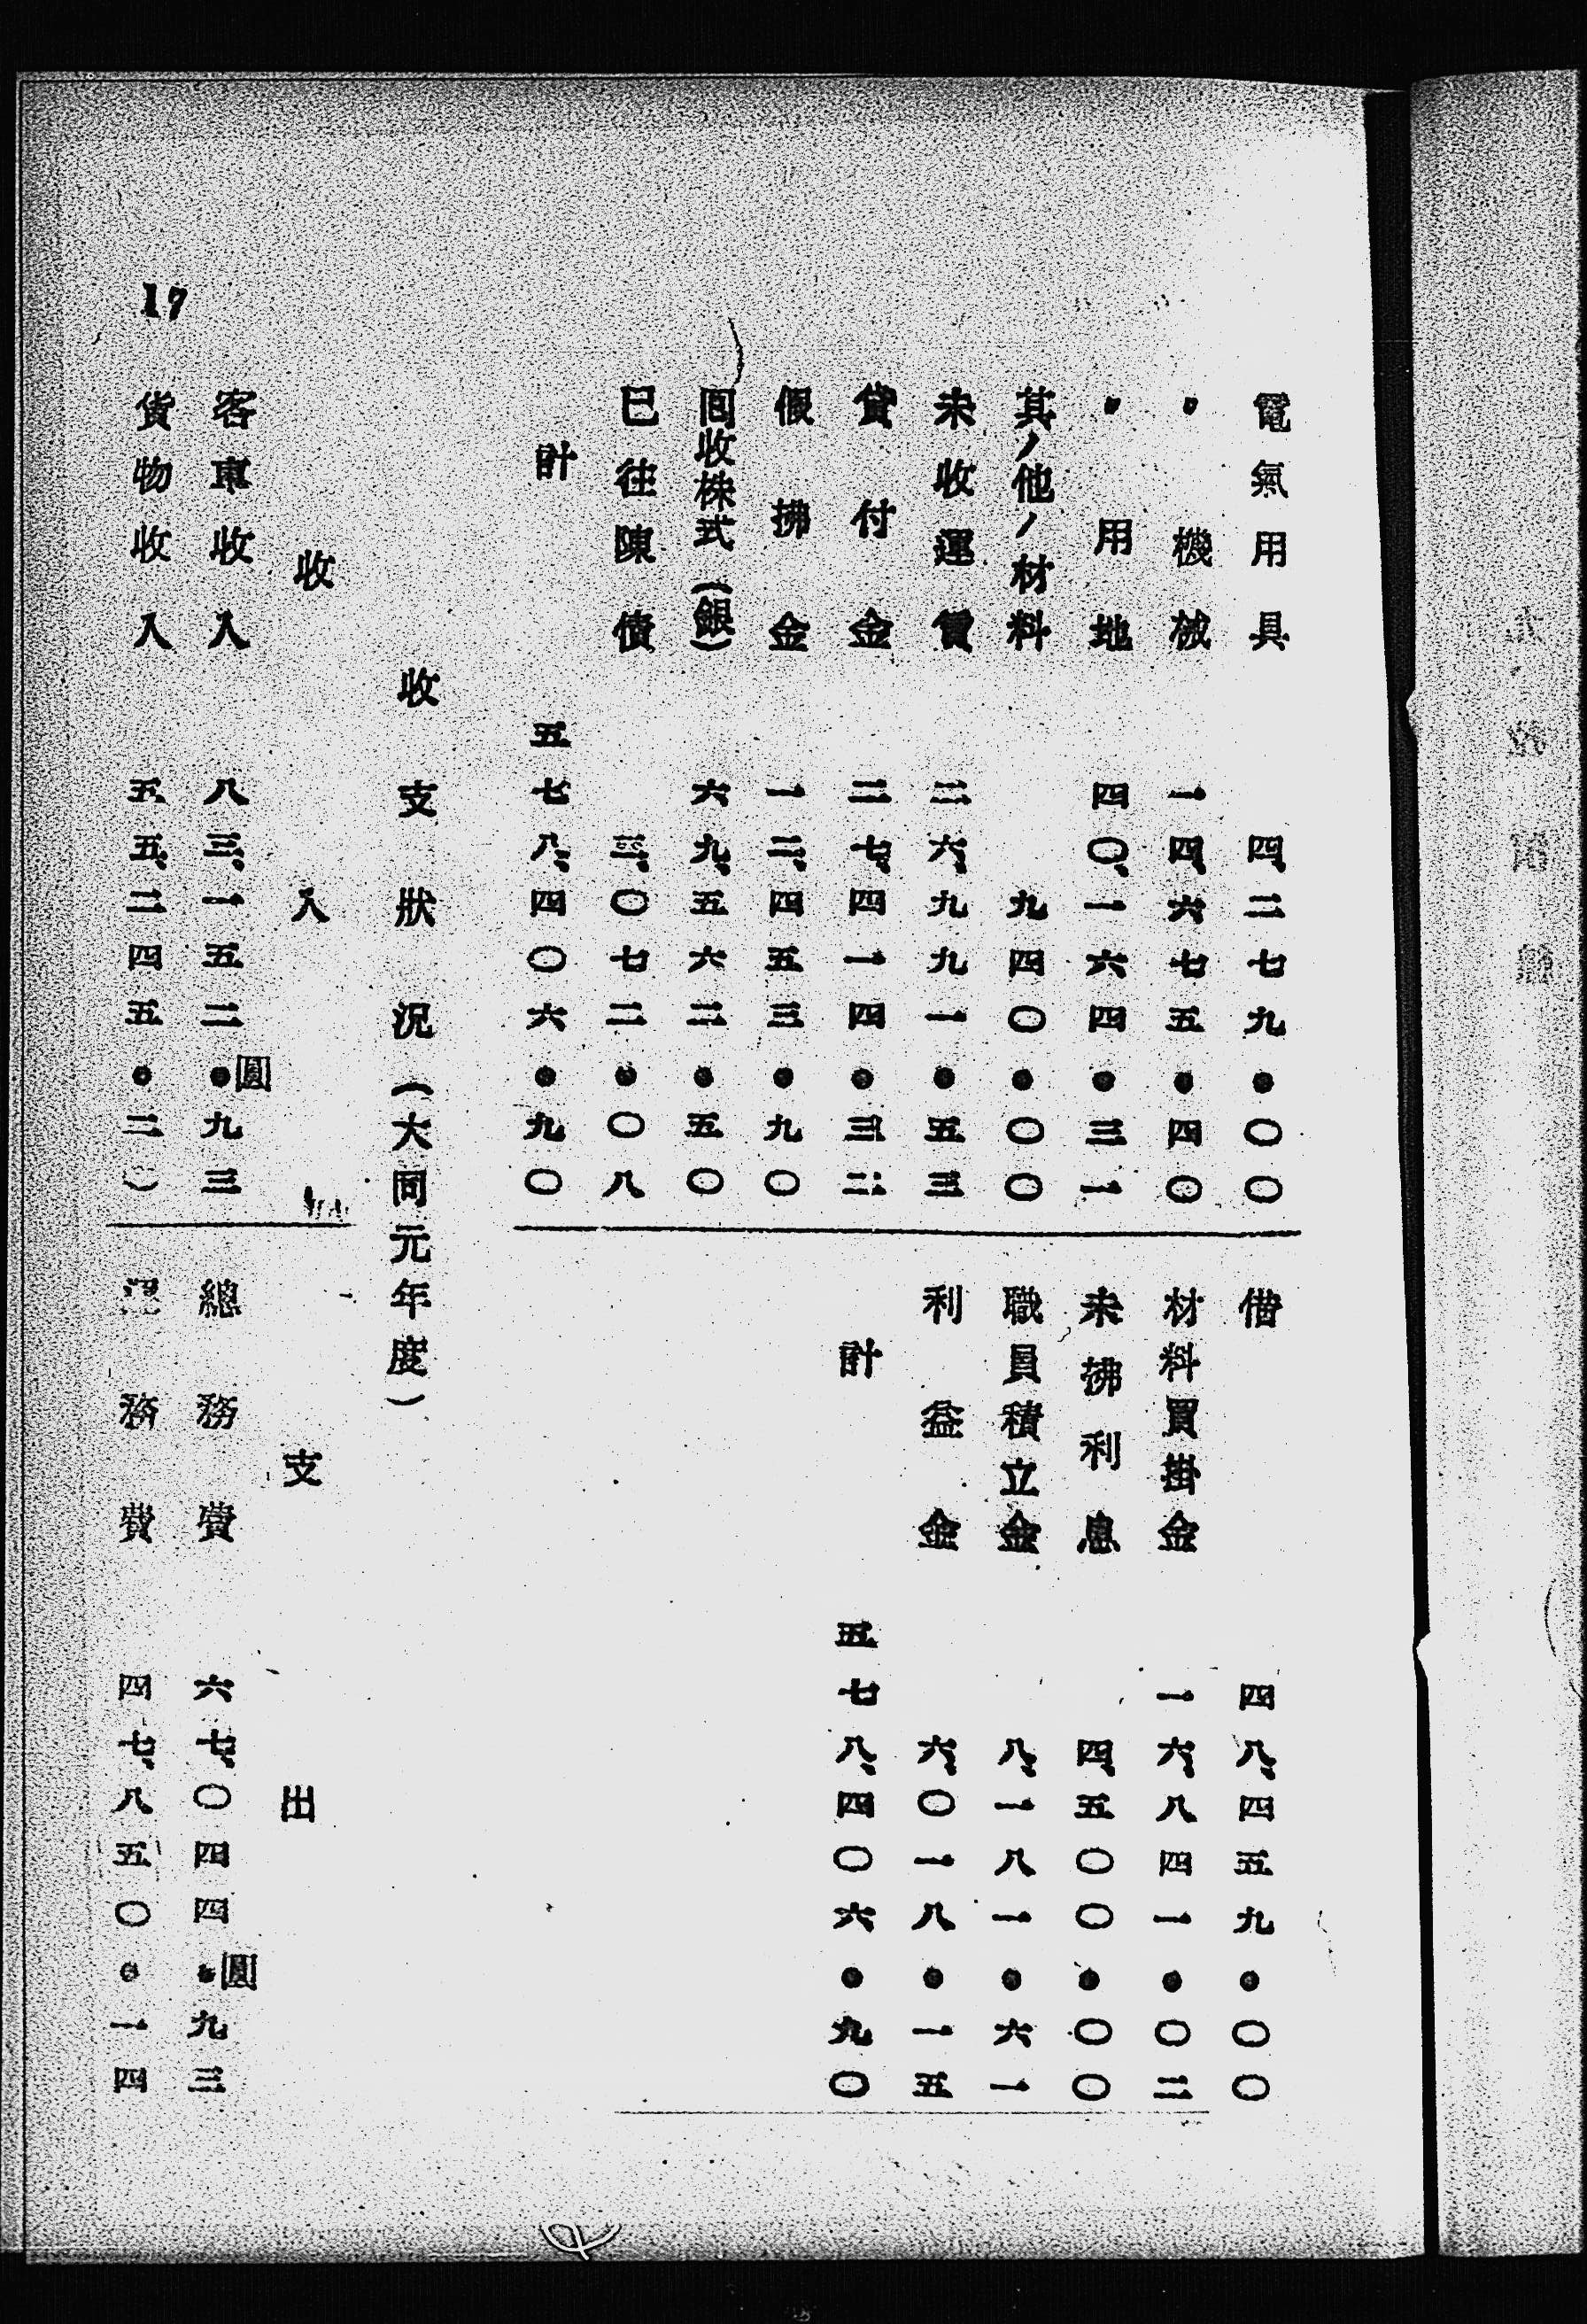 電氣用具 四、二七九●〇〇
〃機械 一四、六七五●四〇
〃用地 四〇、一六四●三一
其ノ他ノ材料 九四〇●〇〇
未收運賃 二六、九九一●五三
貸付金 二七、四一四●三二
假拂金 一二、四五三●九〇
囘收株式(銀) 六九、五六二●五〇
已往陳債 三、〇七二●〇八
計 五七八、四〇六●九〇
借 四八、四五九●〇〇
材料買掛金 一六、八四一●〇二
未拂利息 四、五〇〇●〇〇
職員積立金 八、一八一●六一
利益金 六、〇一八●一五
計 五七八、四〇六●九〇
收支狀況(大同元年度)
收入
客車收入 八三、一五二●九三圓
貨物收入 五五、二四五●二
支出
總務費 六七、〇四四●九三圓
務費 四七、八五〇●一四
17